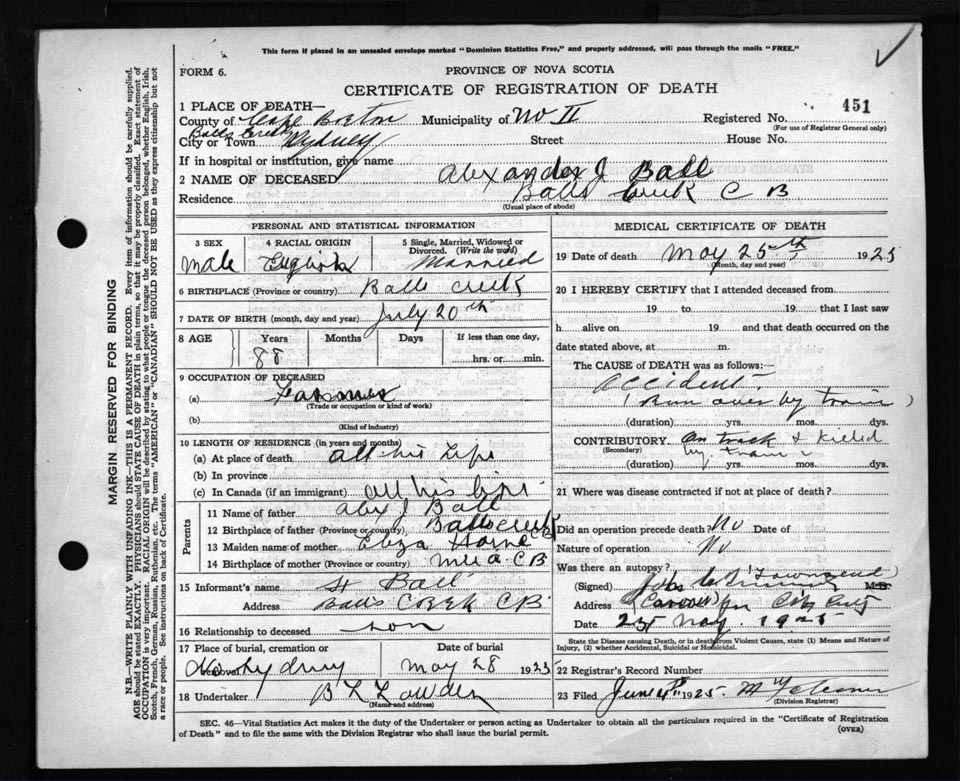 This form if placed in an unsealed envelope marked "Dominion Statistics Free," and properly addressed, will pass through the mails "FREE."
FORM 6.
PROVINCE OF NOVA SCOTIA
CERTIFICATE OF REGISTRATION OF DEATH
1 PLACE OF DEATH—
County of Cape Breton Municipality of No II Registered No. 451
(For use of Registrar General only)
Balls Creek
City or Town Sydney Street House No.
If in hospital or institution, give name
2 NAME OF DECEASED Alexander J Ball
Residence Balls Creek C B
(Usual place of abode)
PERSONAL AND STATISTICAL INFORMATION
3 SEX
Male
4 RACIAL ORIGIN
English
5 Single, Married, Widowed or Divorced. (Write the word)
Married
6 BIRTHPLACE (Province or country) Balls Creek
7 DATE OF BIRTH (month, day and year) July 20th
8 AGE Years Months Days If less than one day,
88 hrs. or min.
9 OCCUPATION OF DECEASED
(a) Farmer
(Trade or occupation or kind of work)
(b)
(Kind of industry)
10 LENGTH OF RESIDENCE (in years and months)
(a) At place of death all his Life
(b) In province
(c) In Canada (if an immigrant) all his life
Parents
11 Name of father Alex J Ball
12 Birthplace of father (Province or country) Balls Creek CB
13 Maiden name of mother Eliza Horne
14 Birthplace of mother (Province or country) Mira CB
15 Informant's name Ball
Address Balls Creek CB
16 Relationship to deceased son
17 Place of burial, cremation or removal
Date of burial
May 28 1925
18 Undertaker
(Name and address)
MEDICAL CERTIFICATE OF DEATH
19 Date of death May 25th 1925
(Month, day and year)
20 I HEREBY CERTIFY that I attended deceased from
19 to 19 that I last saw
h alive on 19 and that death occurred on the
date stated above, at m.
The CAUSE OF DEATH was as follows:
Accident
(Run over by train)
(duration) yrs. mos. dys.
CONTRIBUTORY. On track & Killed
(Secondary) by train
(duration) yrs. mos. dys.
21 Where was disease contracted if not at place of death?
Did an operation precede death? No Date of
Nature of operation No
Was there an autopsy?
(Signed) M.D.
Address
Date 25 May 1925
State the Disease causing Death, or in death from Violent Causes, state (1) Means and Nature of Injury, (2) whether Accidental, Suicidal or Homicidal.
22 Registrar's Record Number
23 Filed June 4th 1925
(Division Registrar)
SEC. 46—Vital Statistics Act makes it the duty of the Undertaker or person acting as Undertaker to obtain all the particulars required in the "Certificate of Registration
of Death" and to file the same with the Division Registrar who shall issue the burial permit.
(OVER)
MARGIN RESERVED FOR BINDING
N.B.—WRITE PLAINLY WITH UNFADING INK—THIS IS A PERMANENT RECORD. Every item of information should be carefully supplied.
AGE should be stated EXACTLY. PHYSICIANS should STATE CAUSE OF DEATH in plain terms, so that it may be properly classified. Exact statement of
OCCUPATION is very important. RACIAL ORIGIN will be described by stating to what people or tongue the deceased person belonged, whether English, Irish,
Scotch, French, German, Russian, Ruthenian, etc. The terms "AMERICAN" or "CANADIAN" SHOULD NOT BE USED as they express citizenship but not
a race or people. See instructions on back of Certificate.